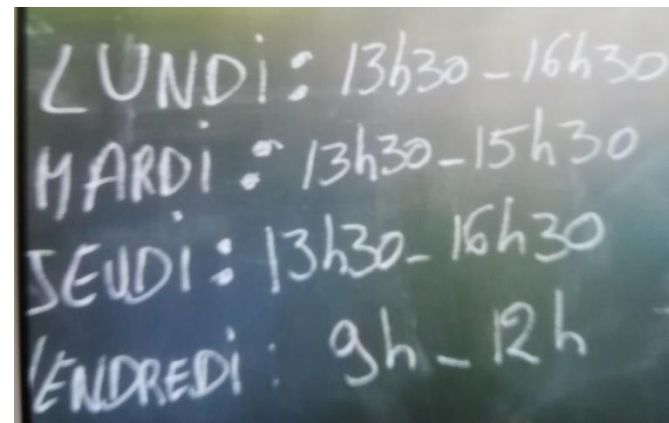 LUNDi : 13h30 - 16h30
MARDi : 13h30 - 15h30
JEUDi : 13h30 - 16h30
VENDREDi : 9h - 12h